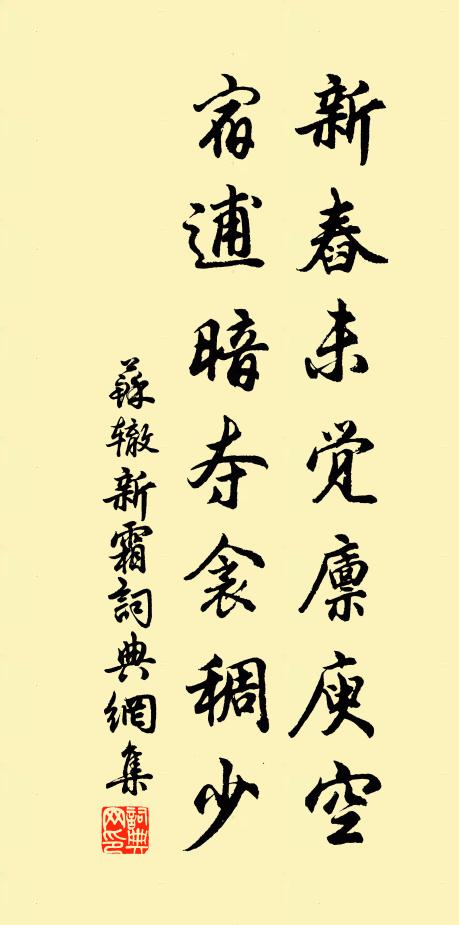 新舂未觉廪庾空
宿逋暗夺衾稠少
蘇辙新霜詞典網集
詞典网印